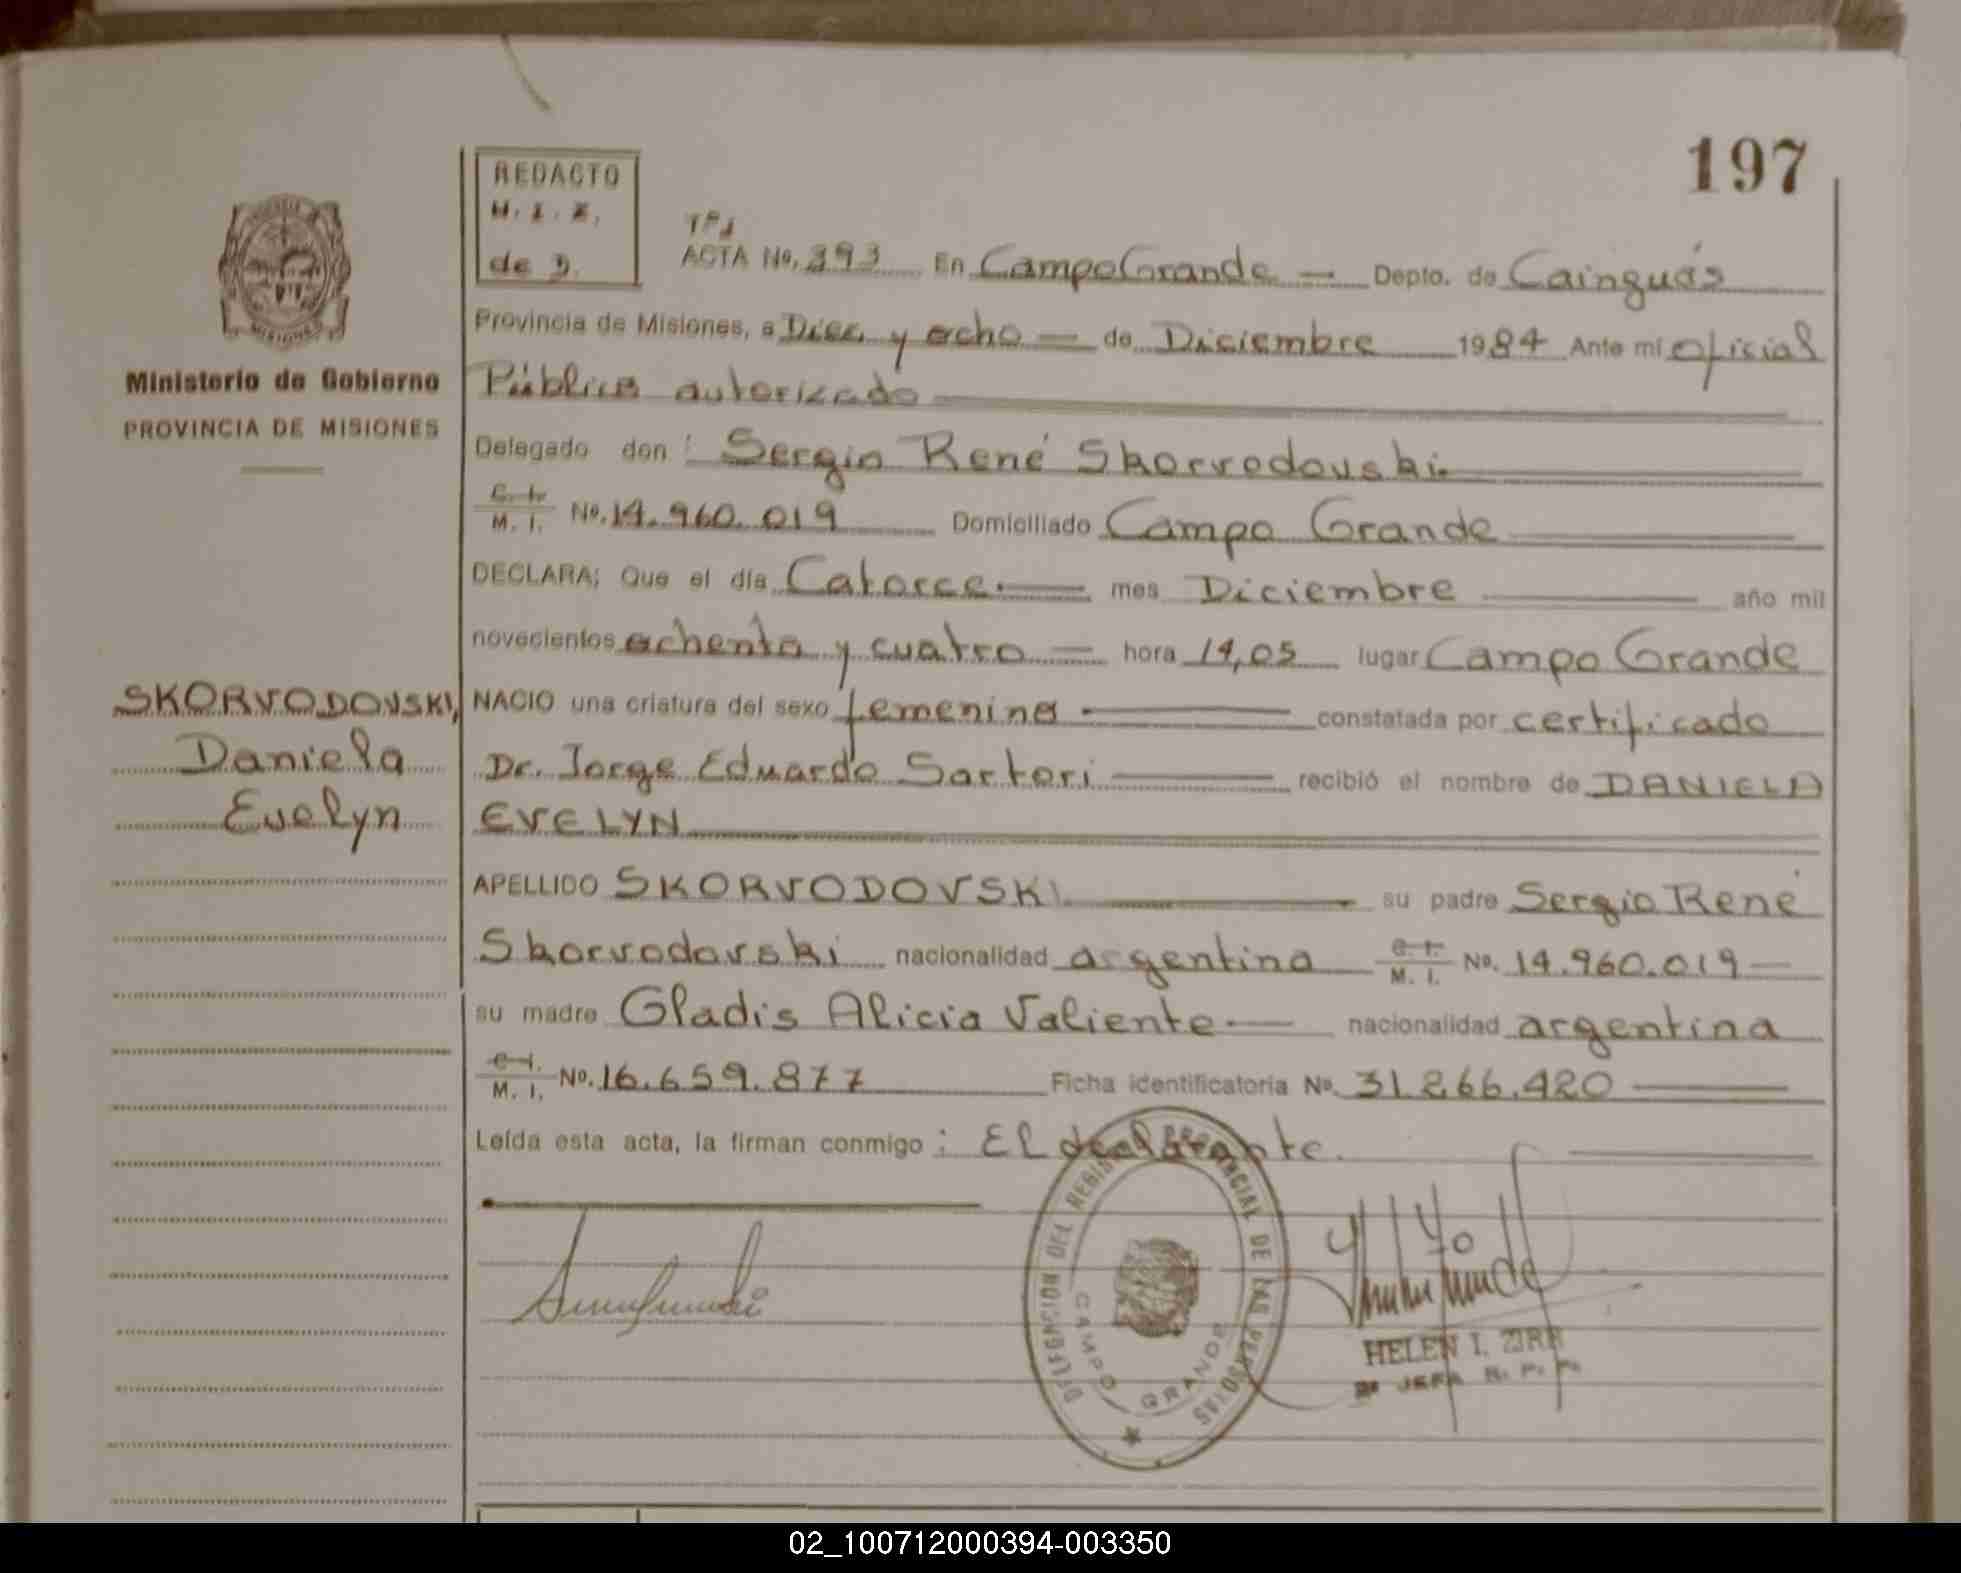 197
REDACTO
H. I. Z.
de D.
Tº J
ACTA No. 393 En Campo Grande — Depto. de Cainguás
Provincia de Misiones, a Diez y ocho — de Diciembre 1984 Ante mi oficial
Público autorizado
Ministerio de Gobierno
PROVINCIA DE MISIONES
Delegado don : Sergio René Skorvodovski
C. I. M. I. No. 14.960.019 Domiciliado Campo Grande
DECLARA; Que el día Catorce — mes Diciembre — año mil
novecientos ochenta y cuatro — hora 14,05 lugar Campo Grande
SKORVODOVSKI,
Daniela
Evelyn
NACIO una criatura del sexo femenino — constatada por certificado
Dr. Jorge Eduardo Sartori — recibió el nombre de DANIELA
EVELYN
APELLIDO SKORVODOVSKI — su padre Sergio René
Skorvodovski nacionalidad argentina C. I. M. I. No. 14.960.019 —
su madre Gladis Alicia Valiente — nacionalidad argentina
C. I. M. I. No. 16.659.877 Ficha identificatoria No. 31.266.420 —
Leída esta acta, la firman conmigo : El declarante.
DELEGACION DEL REGISTRO PROVINCIAL DE LAS PERSONAS
CAMPO GRANDE
HELEN I. ZIRR
JEFA R. P. P.
02_100712000394-003350